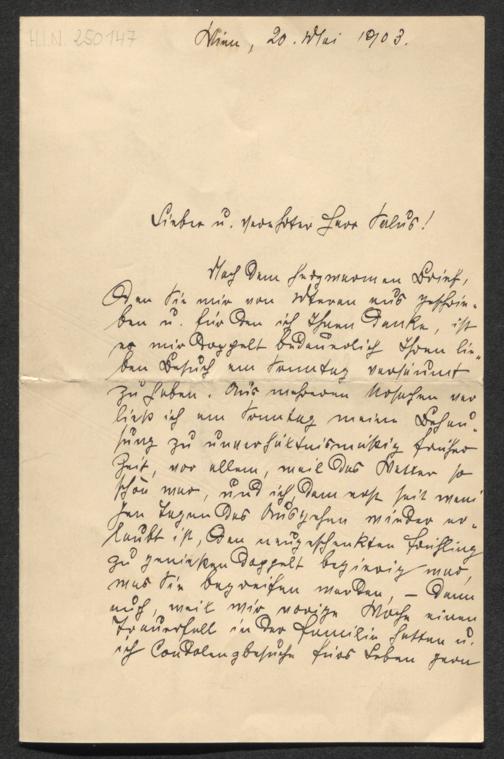 H.I.N. 250147
Wien, 20. Mai 1903.
Lieber u. verehrter Herr Salus!
Nach dem herzwarmen Brief,
den Sie mir von Meran aus geschrie-
ben u. für den ich Ihnen danke, ist
es mir doppelt bedauerlich Ihren lie-
ben Besuch am Sonntag versäumt
zu haben. Aus mehreren Ursachen ver
ließ ich am Sonntag meine Behau-
sung zu unverhältnismäßig früher
Zeit, vor allem, weil das Wetter so
schön war, und ich, dem erst seit weni
gen Tagen das Ausgehen wieder er-
laubt ist, den neugeschenkten Frühling
zu genießen doppelt begierig war,
was Sie begreifen werden, — dann
auch, weil wir vorige Woche einen
Trauerfall in der Familie hatten u.
ich Condolenzbesuche fürs Leben gern